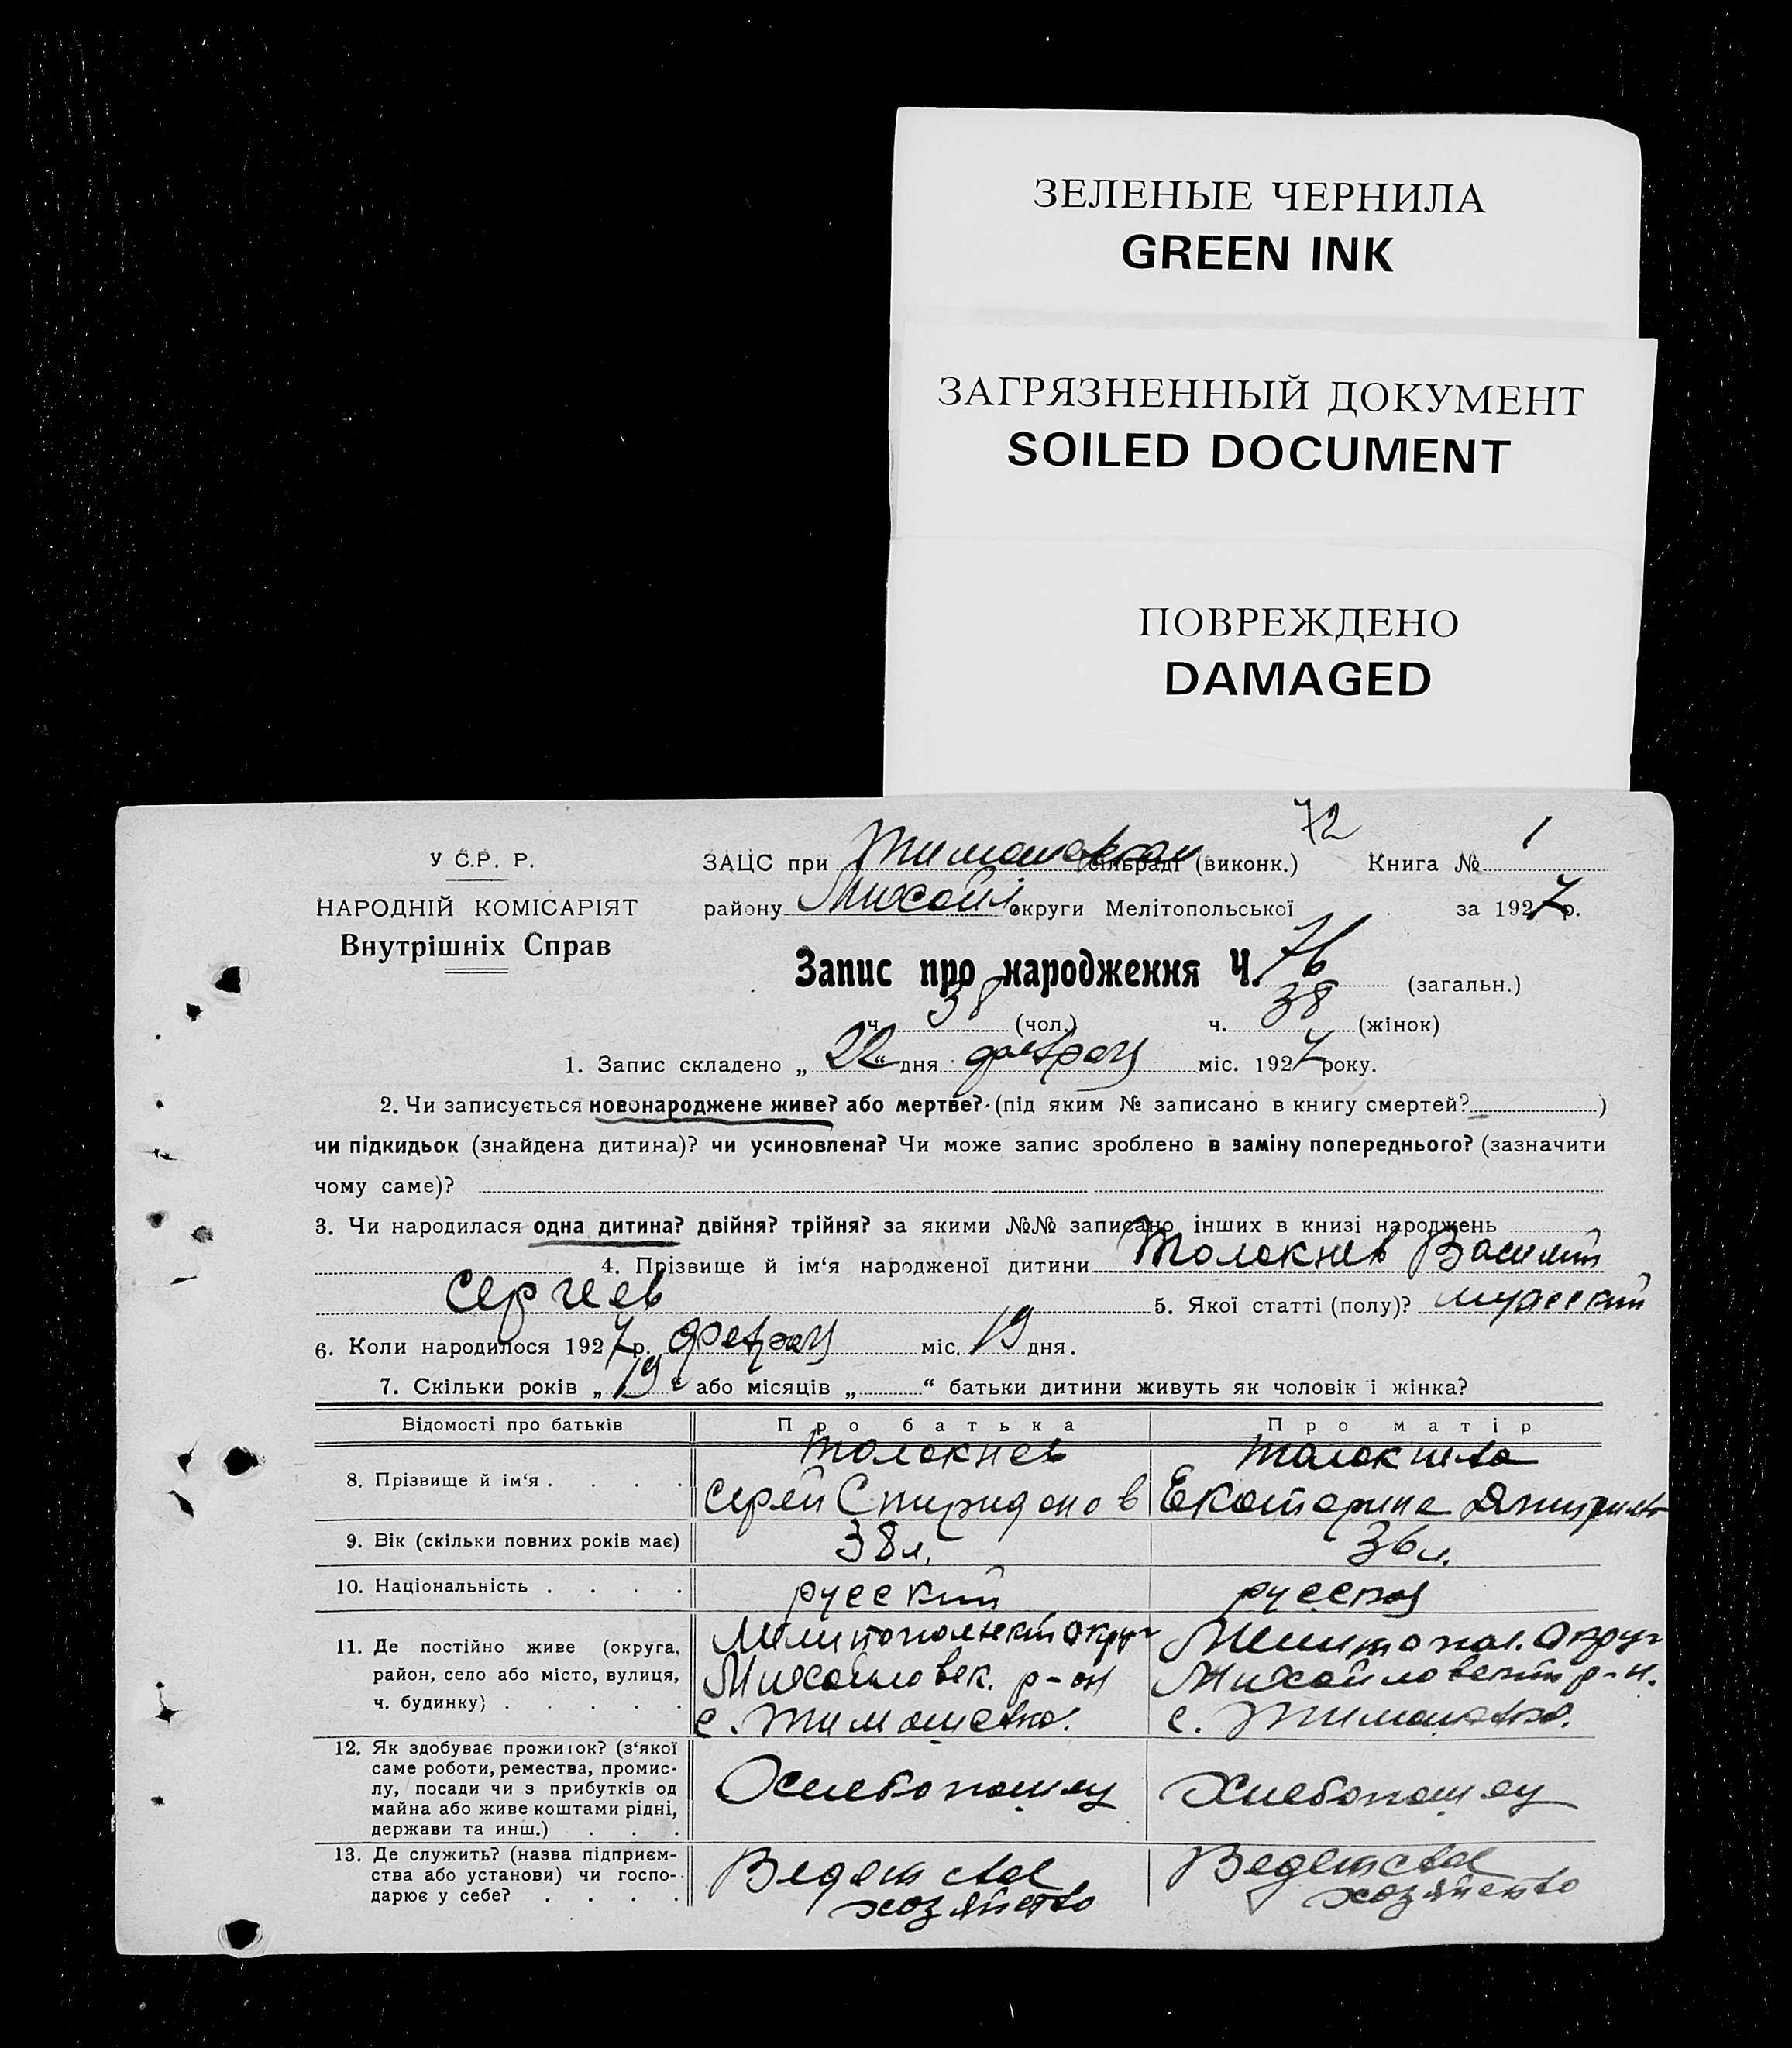 ЗЕЛЕНЫЕ ЧЕРНИЛА
GREEN INK
ЗАГРЯЗНЕННЫЙ ДОКУМЕНТ
SOILED DOCUMENT
ПОВРЕЖДЕНО
DAMAGED
72
У С.Р. Р.
ЗАЦС при Тимошевской сільраді (виконк.) Книга № 1
НАРОДНІЙ КОМІСАРІЯТ
району Михайл. округи Мелітопольської за 1927 р.
Внутрішніх Справ
Запис про народження Ч. 76 (загальн.)
ч. 38 (чол.) ч. 38 (жінок)
1. Запис складено „ 22 “ дня февраля міс. 1927 року.
2. Чи записується новонароджене живе? або мертве? (під яким № записано в книгу смертей? )
чи підкидьок (знайдена дитина)? чи усиновлена? Чи може запис зроблено в заміну попереднього? (зазначити
чому саме)?
3. Чи народилася одна дитина? двійня? трійня? за якими №№ записано інших в книзі народжень
4. Прізвище й ім‘я народженої дитини Толокнев Василий
Сергеев 5. Якої статті (полу)? мужеский
6. Коли народилося 1927 р. февраля міс. 19 дня.
7. Скільки років „ 19 “ або місяців „ “ батьки дитини живуть як чоловік і жінка?
Відомості про батьків Про батька Про матір
8. Прізвище й ім‘я . . . .
Толокнев
Сергей Спиридонов
Толокнева
Екатерина
9. Вік (скільки повних років має) 38 л. 36 л.
10. Національність . . . . русский русская
11. Де постійно живе (округа,
район, село або місто, вулиця,
ч. будинку) . . . . .
Мелитопольский округ
Михайловск. р-он
с. Тимошевка.
Мелитопол. округ
Михайловский р-н.
с. Тимошевка.
12. Як здобуває прожиток? (з‘якої
саме роботи, ремества, промис-
лу, посади чи з прибутків од
майна або живе коштами рідні,
держави та инш.) . . .
Хлебопашец
Хлебопашец
13. Де служить? (назва підприєм-
ства або установи) чи госпо-
дарює у себе? . . . .
Ведет свое
хозяйство
Ведет свое
хозяйство